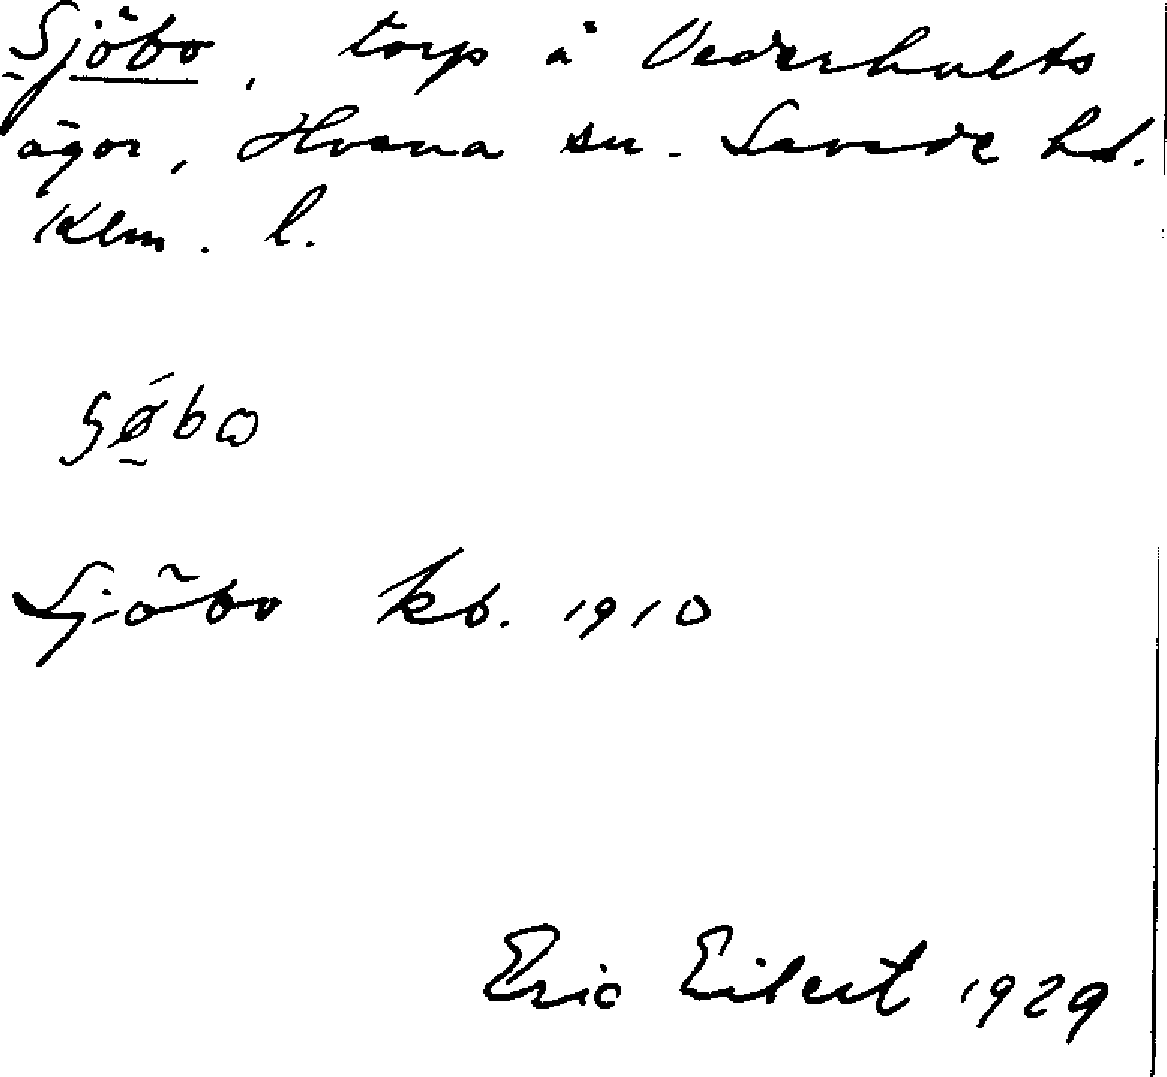 Sjöbo, torp å Vederhults
ägor, Hvena sn. Sevede hd.
Klm. l.
Sjöbo kb. 1910
Eric Eilert 1929